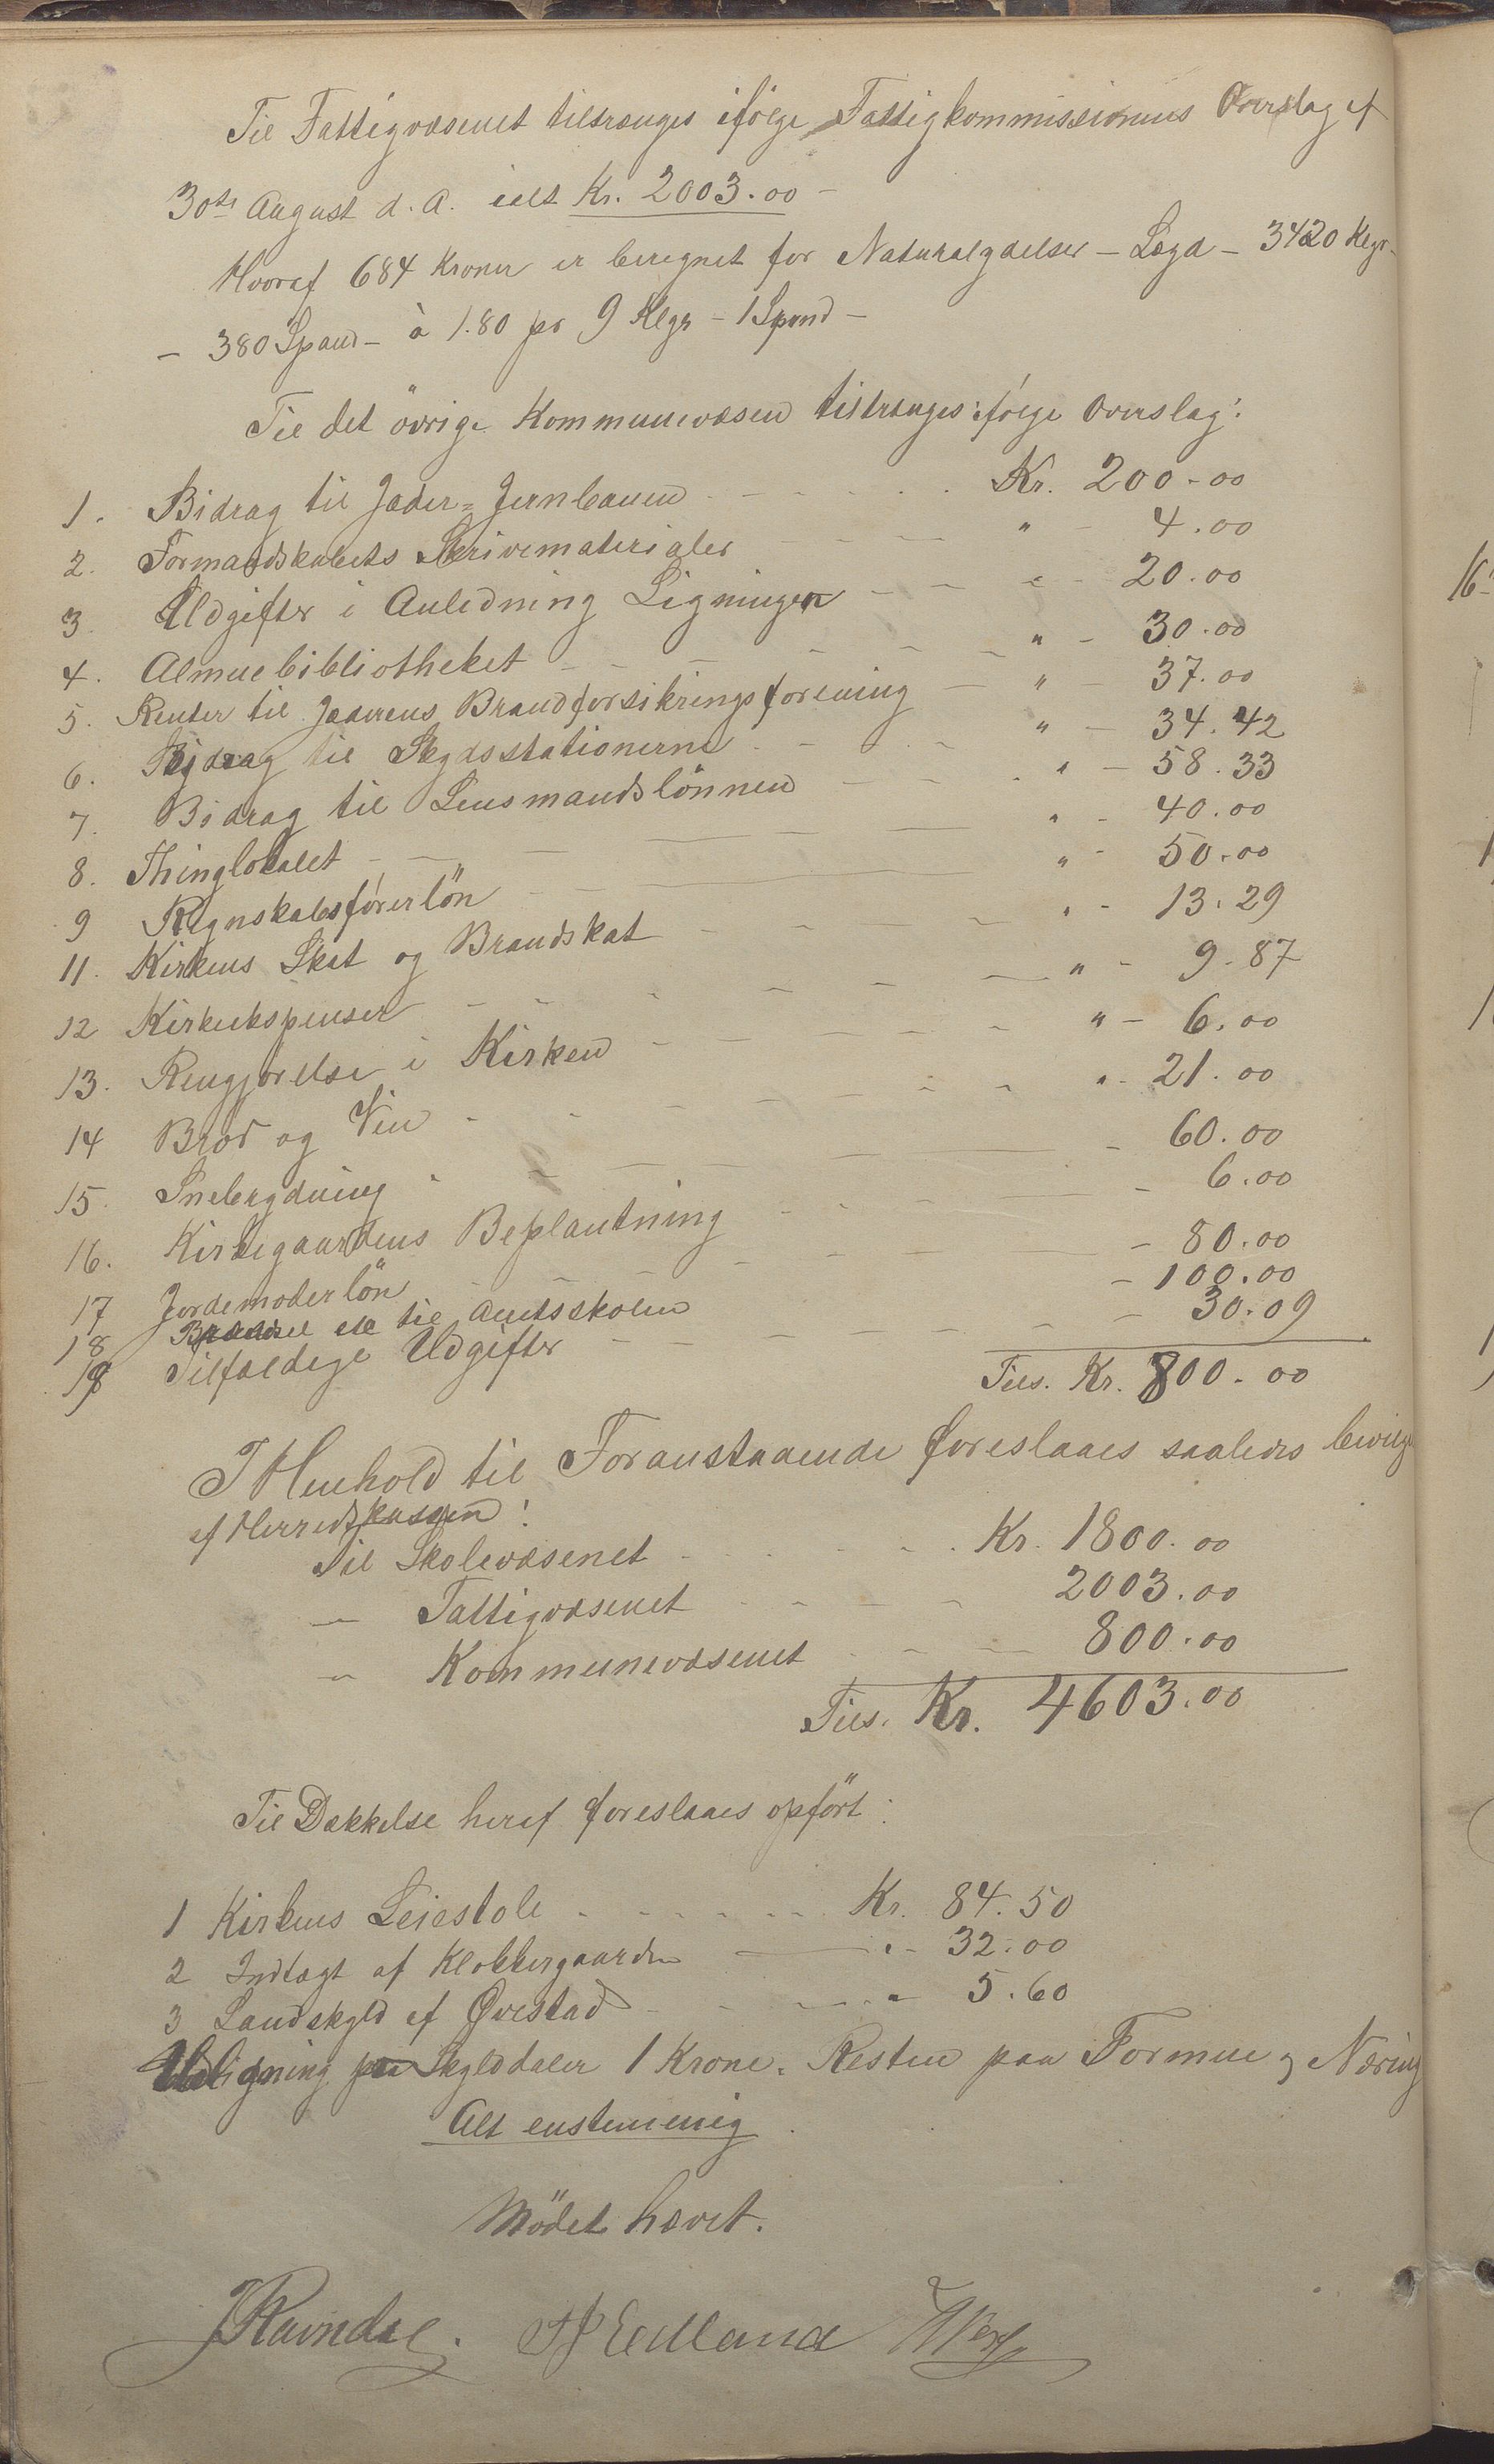 Til Fattigvæsenet tiltrænges ifølge Fattigkommissionens Overslag af
30te August d. A. ialt Kr. 2003.00 -
Hvoraf 684 Kroner er beregnet for Naturalydelser - Lægd - 3420 Klgr.
- 380 Spand - à 1.80 pr 9 Klgr - 1 Spand -
Til det övrige Kommunevæsen tiltrænges ifølge Overslag:
1. Bidrag til Jæder=Jernbanen - - - Kr. 200.00
2. Formandskabets Skrivematerialer - - - " - 4.00
3. Udgifter i Anledning Ligningen - - - " - 20.00
4. Almuebibliotheket - - - " - 30.00
5. Renter til Jæderens Brandforsikringsforening - " - 37.00
6. Bidrag til Skydsstationerne - - - " - 34.42
7. Bidrag til Lensmandslönnen - - - " - 58.33
8. Thinglokalet - - - " - 40.00
9 Regnskabsførerlön - - - " - 50.00
11. Kirkens Skat og Brandskat - - - " - 13.29
12 Kirkeekspenser - - - " - 9.87
13. Rengjørelse i Kirken - - - " - 6.00
14 Brød og Vin - - - " - 21.00
15. Snebrydning - - - - 60.00
16. Kirkegaardens Beplantning - - - - 6.00
17 Jordemoderlön - - - - 80.00
18 til Amtsskolen - - - - 100.00
19 Tilfældige Udgifter - - - - 30.09
Tils. Kr. 800.00
I Henhold til Foranstaaende foreslaaes saaledes bevilget
af Herredskassen:
Til Skolevæsenet - - - Kr. 1800.00
- Fattigvæsenet - - - 2003.00
- Kommunevæsenet - - - 800.00
Tils. Kr. 4603.00
Til Dækkelse heraf foreslaaes opført:
1 Kirkens Leiestole - - - Kr. 84.50
2 Indtægt af Klokkergaarden - " - 32.00
3 Landskyld af Qvestad - - - " 5.60
Udligning paa Skylddaler 1 Krone. Resten paa Formue og Næring
Alt enstemmig.
Mödet hævet.
J Ravndal. Edland